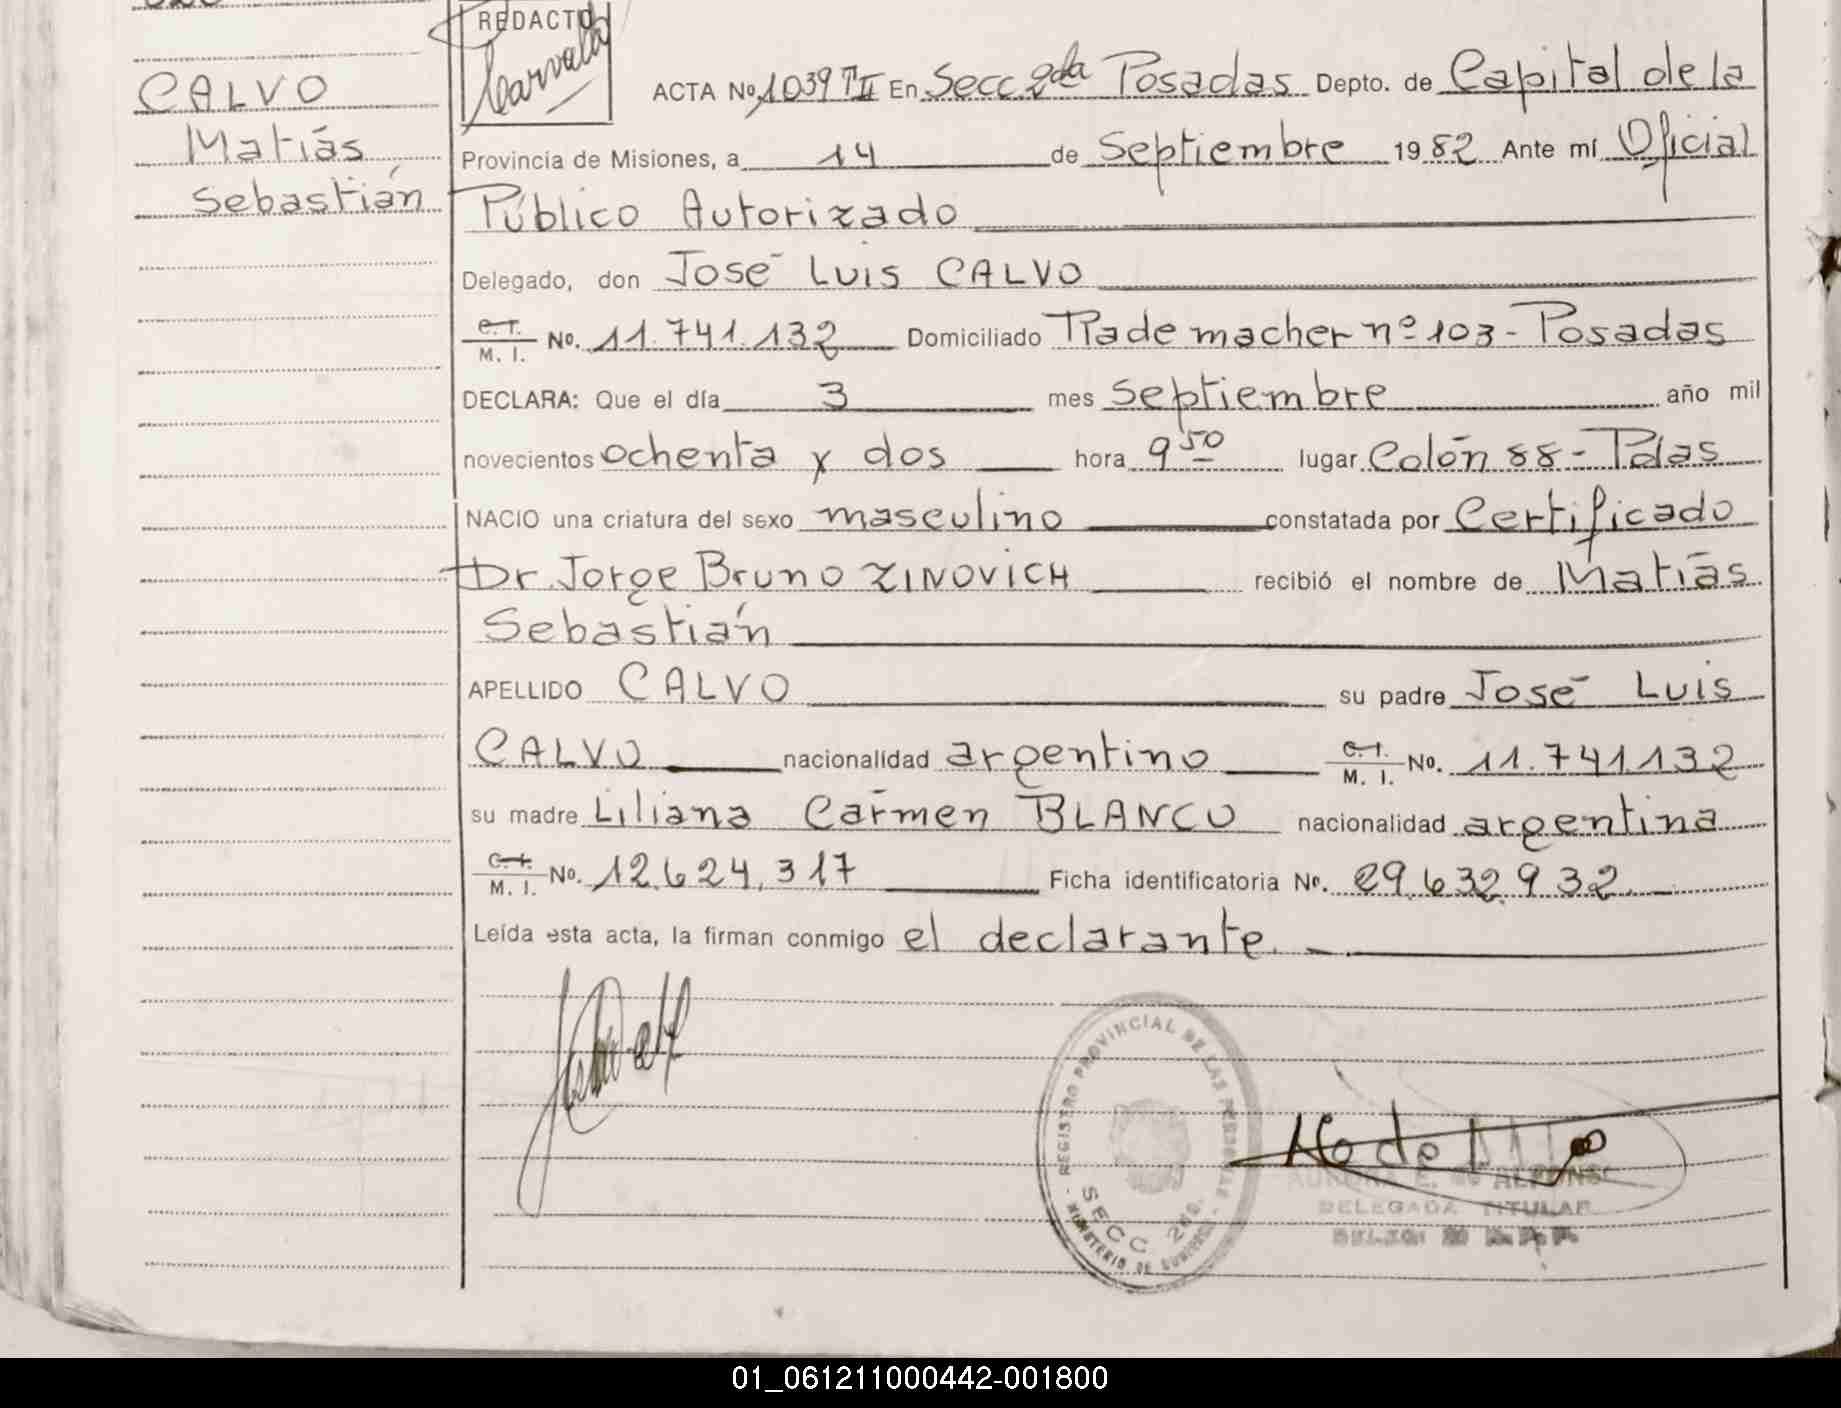 CALVO
Matías
Sebastián
REDACTO
ACTA No 1039 TII En Secc 2da Posadas Depto. de Capital de la
Provincia de Misiones, a 14 de Septiembre 1982 Ante mí Oficial
Público Autorizado
Delegado, don José Luis CALVO
C.I. / M. I. No. 11.741.132 Domiciliado Rademacher nº 103 - Posadas
DECLARA: Que el día 3 mes septiembre año mil
novecientos ochenta y dos hora 9 50 lugar Colón 88 - Pdas
NACIO una criatura del sexo masculino constatada por Certificado
Dr Jorge Bruno ZINOVICH recibió el nombre de Matías
Sebastián
APELLIDO CALVO su padre José Luis
CALVO nacionalidad argentino C.I. / M. I. No. 11.741.132
su madre Liliana Carmen BLANCO nacionalidad argentina
C.I. / M. I. No. 12.624.317 Ficha identificatoria No. 29.632.932.
Leída esta acta, la firman conmigo el declarante.
REGISTRO PROVINCIAL DE LAS PERSONAS
SECC 2da.
MINISTERIO DE GOBIERNO
DELEGADA TITULAR
01_061211000442-001800